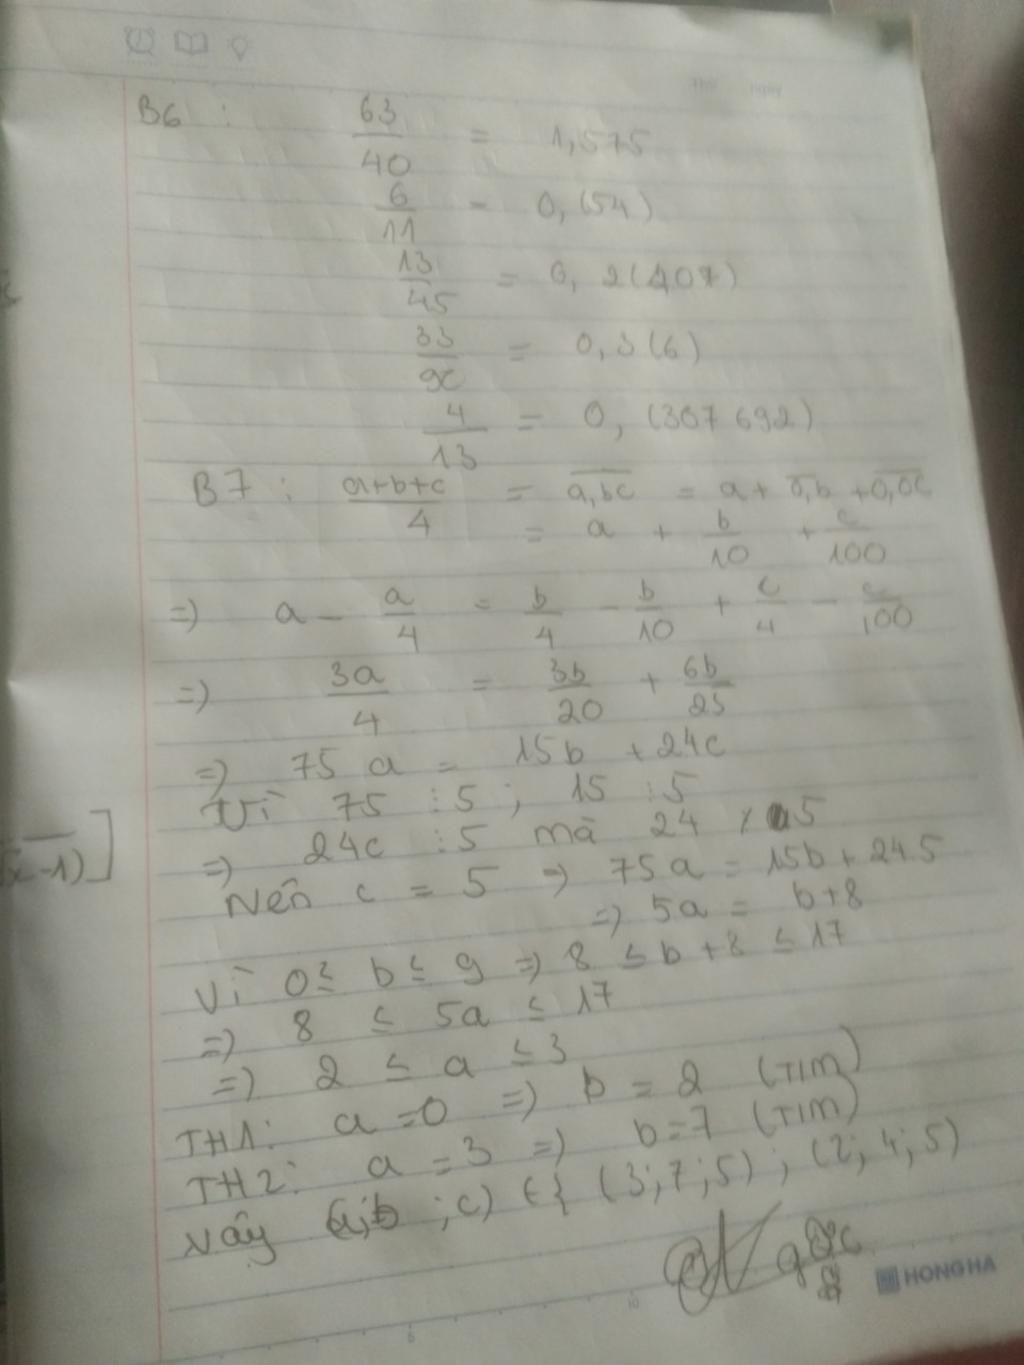 B6 : 63/40 = 1,575
6/11 = 0,(54)
13/45 = 0,2(407)
33/90 = 0,3(6)
4/13 = 0,(307 692)
B7 : (a+b+c)/4 = a,bc = a + 0,b + 0,0c
= a + b/10 + c/100
=> a - a/4 = b/4 - b/10 + c/4 - c/100
=> 3a/4 = 3b/20 + 6b/25
=> 75 a = 15b + 24c
Vì 75 ⋮ 5 ; 15 ⋮ 5
=> 24c ⋮ 5 mà 24 ⋮̸ 5
Nên c = 5 => 75a = 15b + 24.5
=> 5a = b+8
Vì 0 ≤ b ≤ 9 => 8 ≤ b + 8 ≤ 17
=> 8 ≤ 5a ≤ 17
=> 2 ≤ a ≤ 3
TH1: a = 0 => b = 2 (TIM)
TH2: a = 3 => b = 7 (TIM)
Vậy (a;b ;c) ∈ { (3;7;5) ; (2; 4; 5)
HONG HA